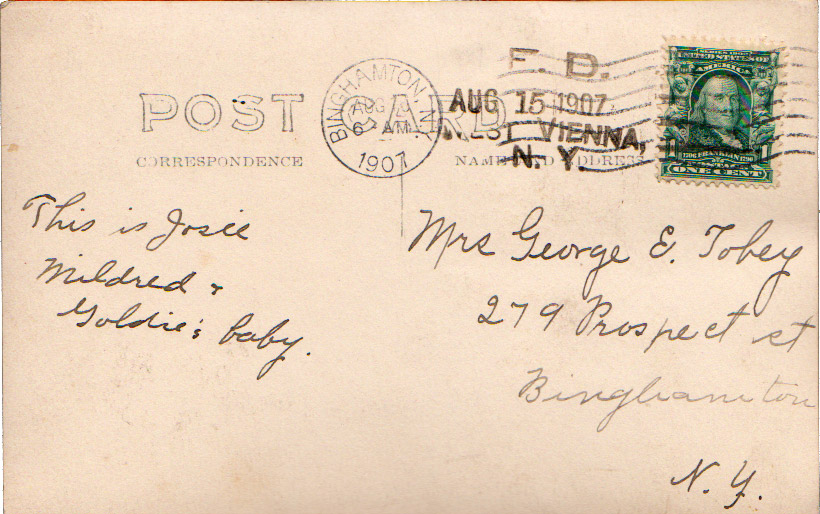 POST CARD
CORRESPONDENCE
NAME AND ADDRESS
BINGHAMTON, N.Y.
AUG
6 - AM
1907
F. D.
AUG 15 1907
WEST VIENNA,
N. Y.
SERIES 1902
UNITED STATES OF
AMERICA
1706 FRANKLIN 1790
POSTAGE
1 1
ONE CENT
This is Josie
Mildred &
Goldie's baby.
Mrs George E. Tobey
279 Prospect st
Binghamton
N. Y.